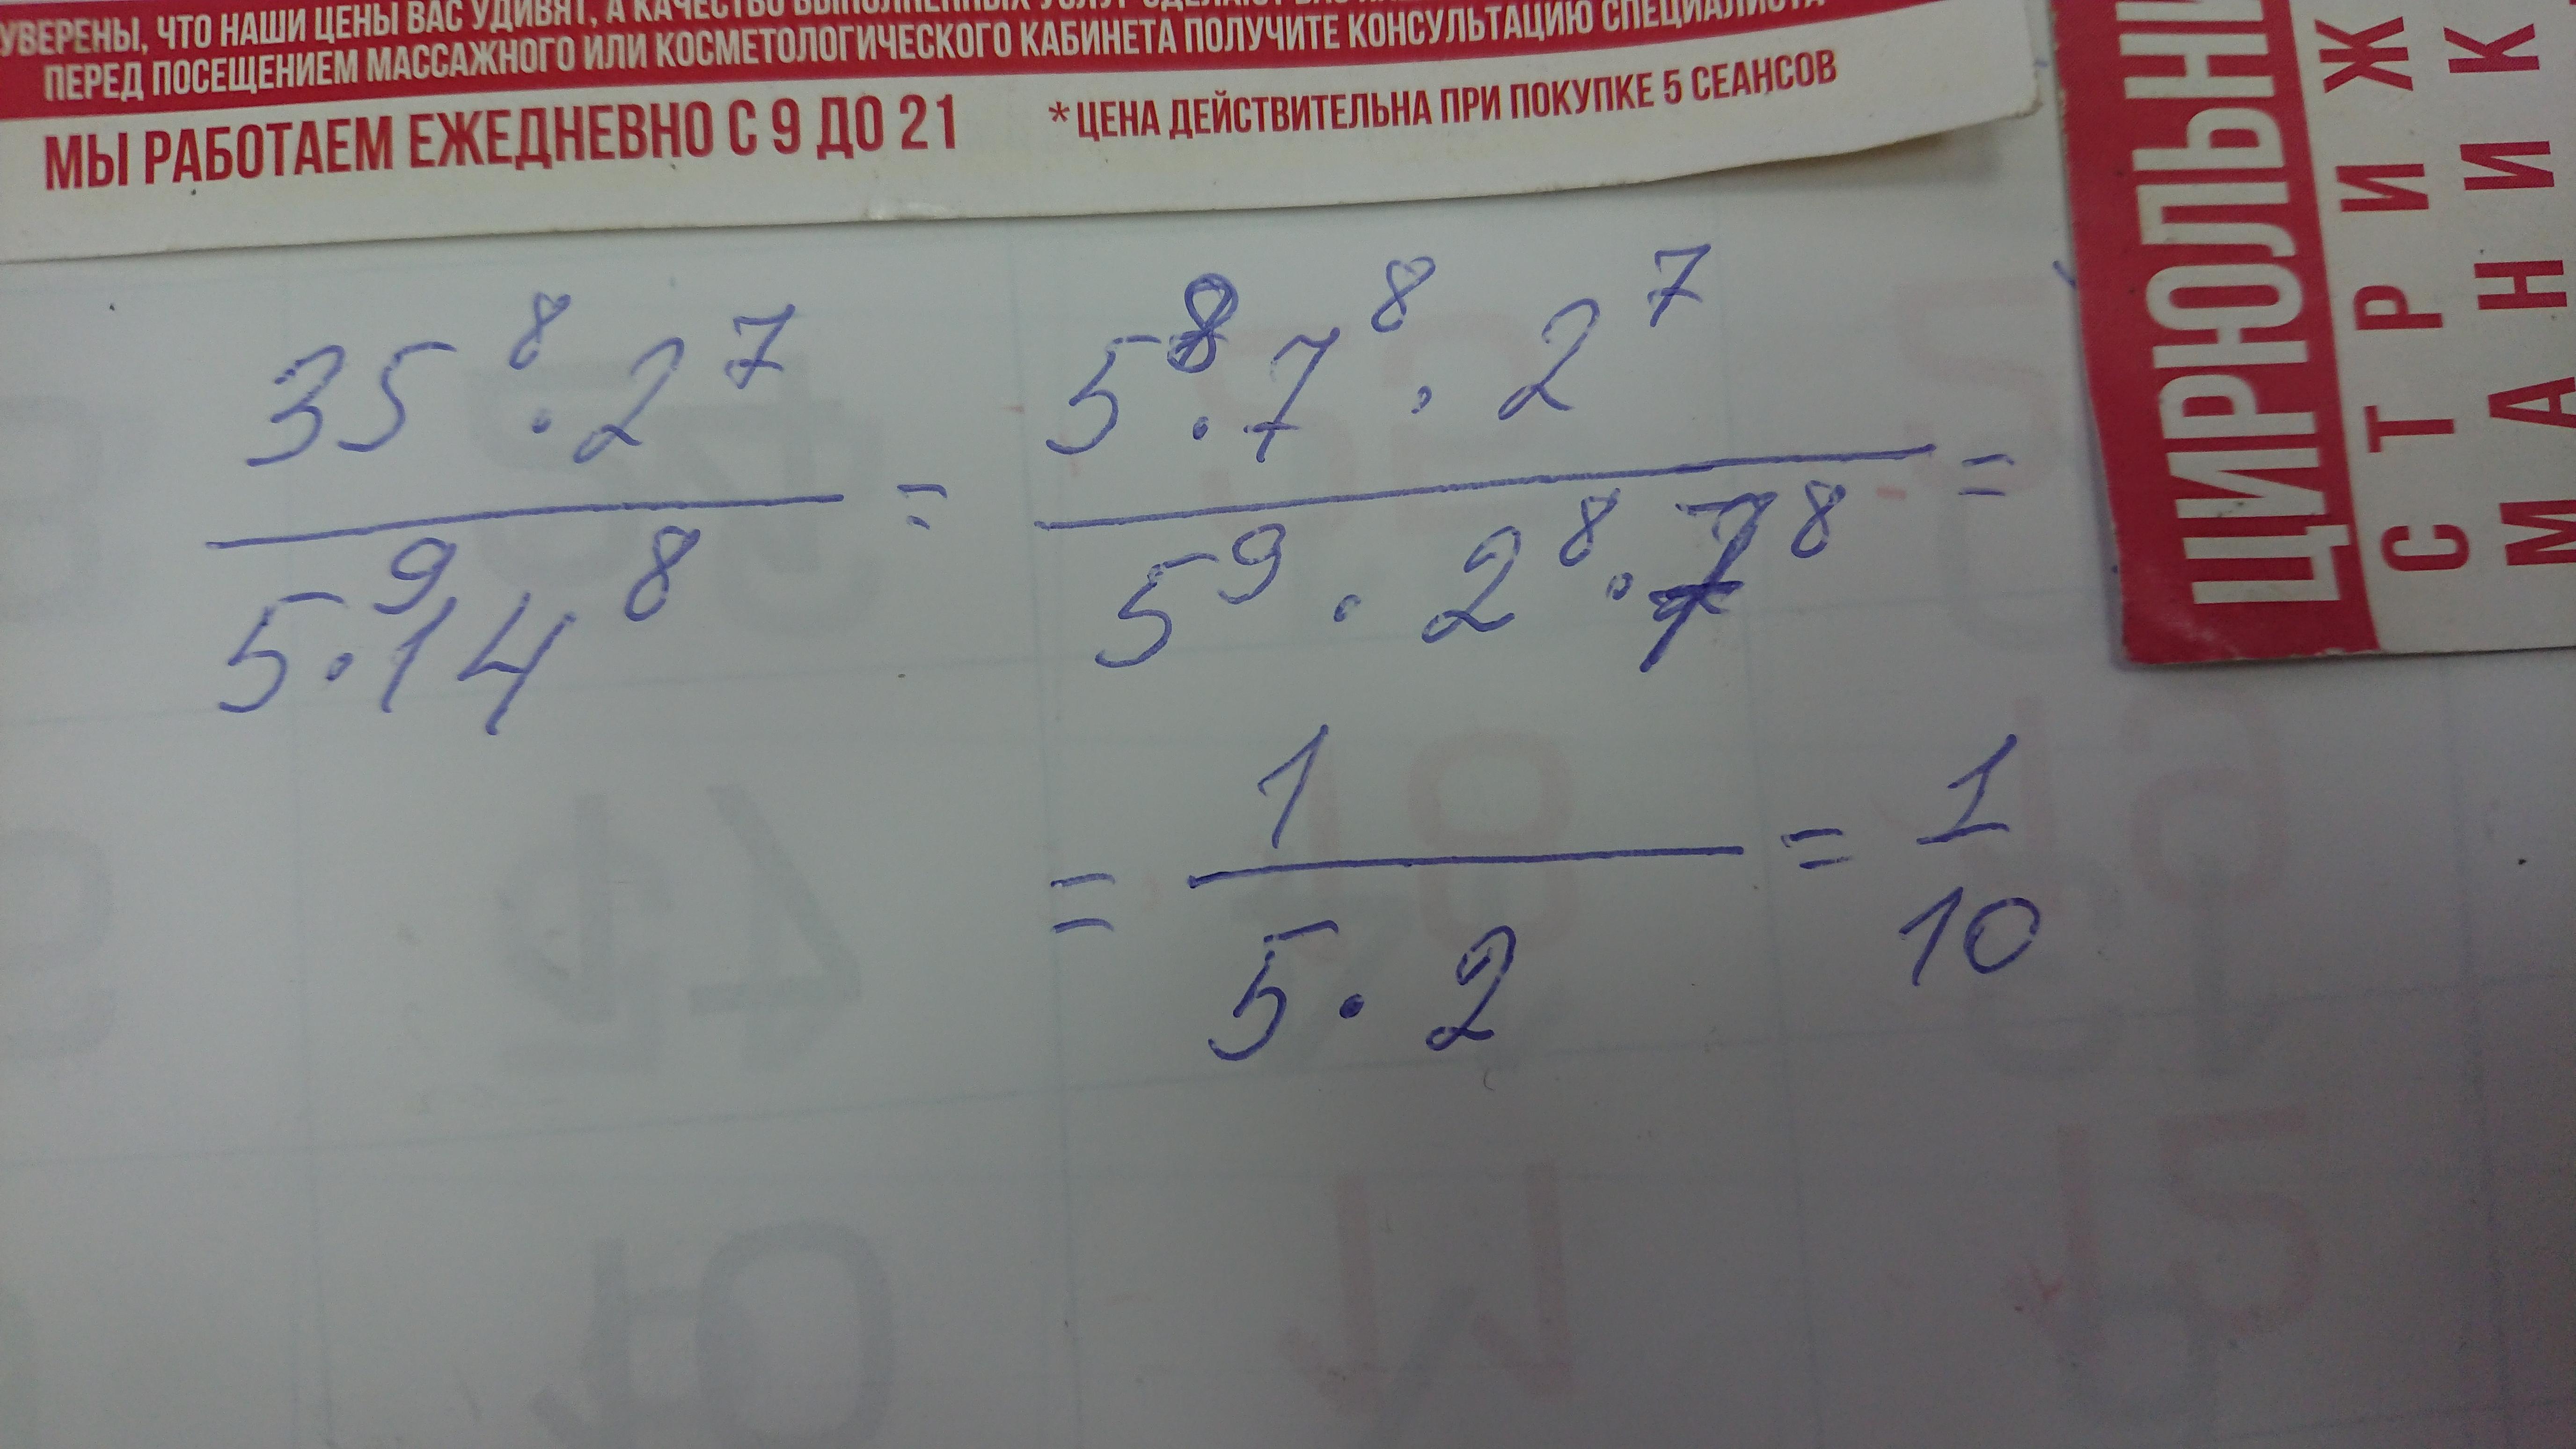 УВЕРЕНЫ, ЧТО НАШИ ЦЕНЫ ВАС УДИВЯТ, А КАЧЕСТВО ВЫПОЛНЕННЫХ УСЛУГ
ПЕРЕД ПОСЕЩЕНИЕМ МАССАЖНОГО ИЛИ КОСМЕТОЛОГИЧЕСКОГО КАБИНЕТА ПОЛУЧИТЕ КОНСУЛЬТАЦИЮ СПЕЦИАЛИСТА
МЫ РАБОТАЕМ ЕЖЕДНЕВНО С 9 ДО 21 *ЦЕНА ДЕЙСТВИТЕЛЬНА ПРИ ПОКУПКЕ 5 СЕАНСОВ
ЦИРЮЛЬНИ
СТРИЖ
МАНИК
35⁸ · 2⁷ / 5⁹ · 14⁸ = 5⁸ · 7⁸ · 2⁷ / 5⁹ · 2⁸ · 7⁸ =
= 1 / 5 · 2 = 1 / 10